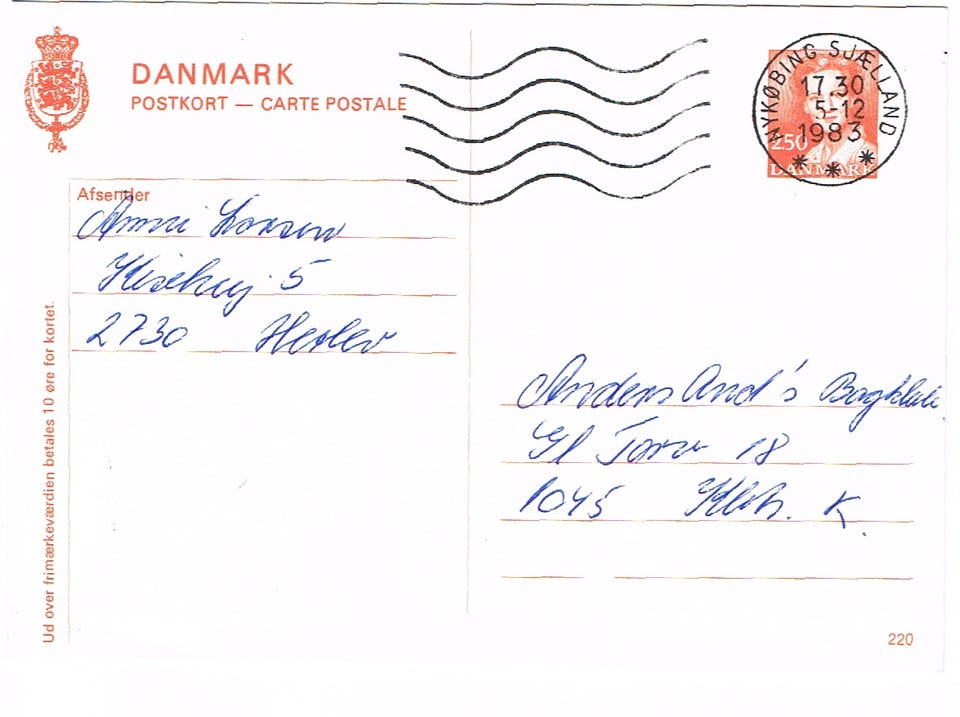 DANMARK
POSTKORT — CARTE POSTALE
NYKØBING SJÆLLAND
17.30
5-12
1983
2.50
DANMARK
Afsender
Anni Larsen
5
2730 Herlev
Anders And's Bogklub
Gl Torv 18
1045 Kbh. K.
Ud over frimærkeværdien betales 10 øre for kortet.
220